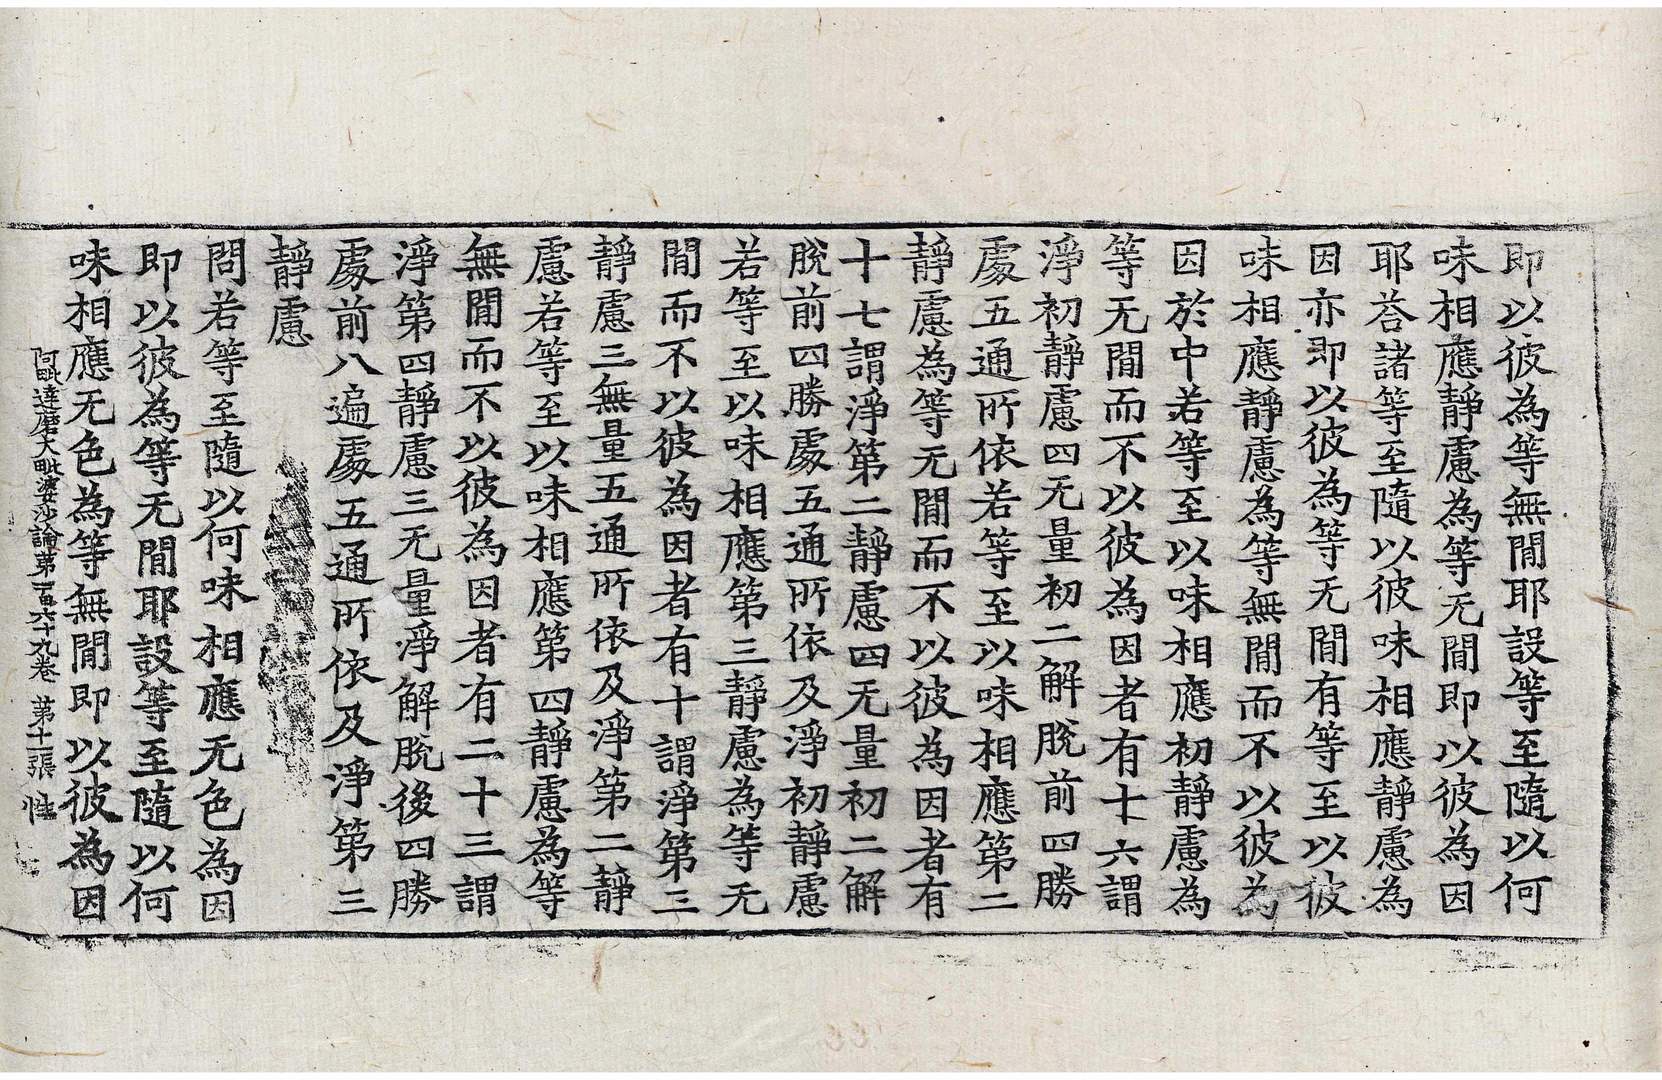 即以彼為等無間耶設等至隨以何
味相應靜慮為等无間即以彼為因
耶荅諸等至隨以彼味相應靜慮為
因亦即以彼為等无間有等至以彼
味相應靜慮為等無間而不以彼為
因於中若等至以味相應初靜慮為
等无間而不以彼為因者有十六謂
淨初靜慮四无量初二解脫前四勝
處五通所依若等至以味相應第二
靜慮為等无間而不以彼為因者有
十七謂淨第二靜慮四无量初二解
脫前四勝處五通所依及淨初靜慮
若等至以味相應第三靜慮為等无
間而不以彼為因者有十謂淨第三
靜慮三無量五通所依及淨第二靜
慮若等至以味相應第四靜慮為等
無間而不以彼為因者有二十三謂
淨第四靜慮三无量淨解脫後四勝
處前八遍處五通所依及淨第三
靜慮
問若等至隨以何味相應无色為因
即以彼為等无間耶設等至隨以何
味相應无色為等無間即以彼為因
阿毗達磨大毗婆沙論第一百六十九卷 第十一張 性